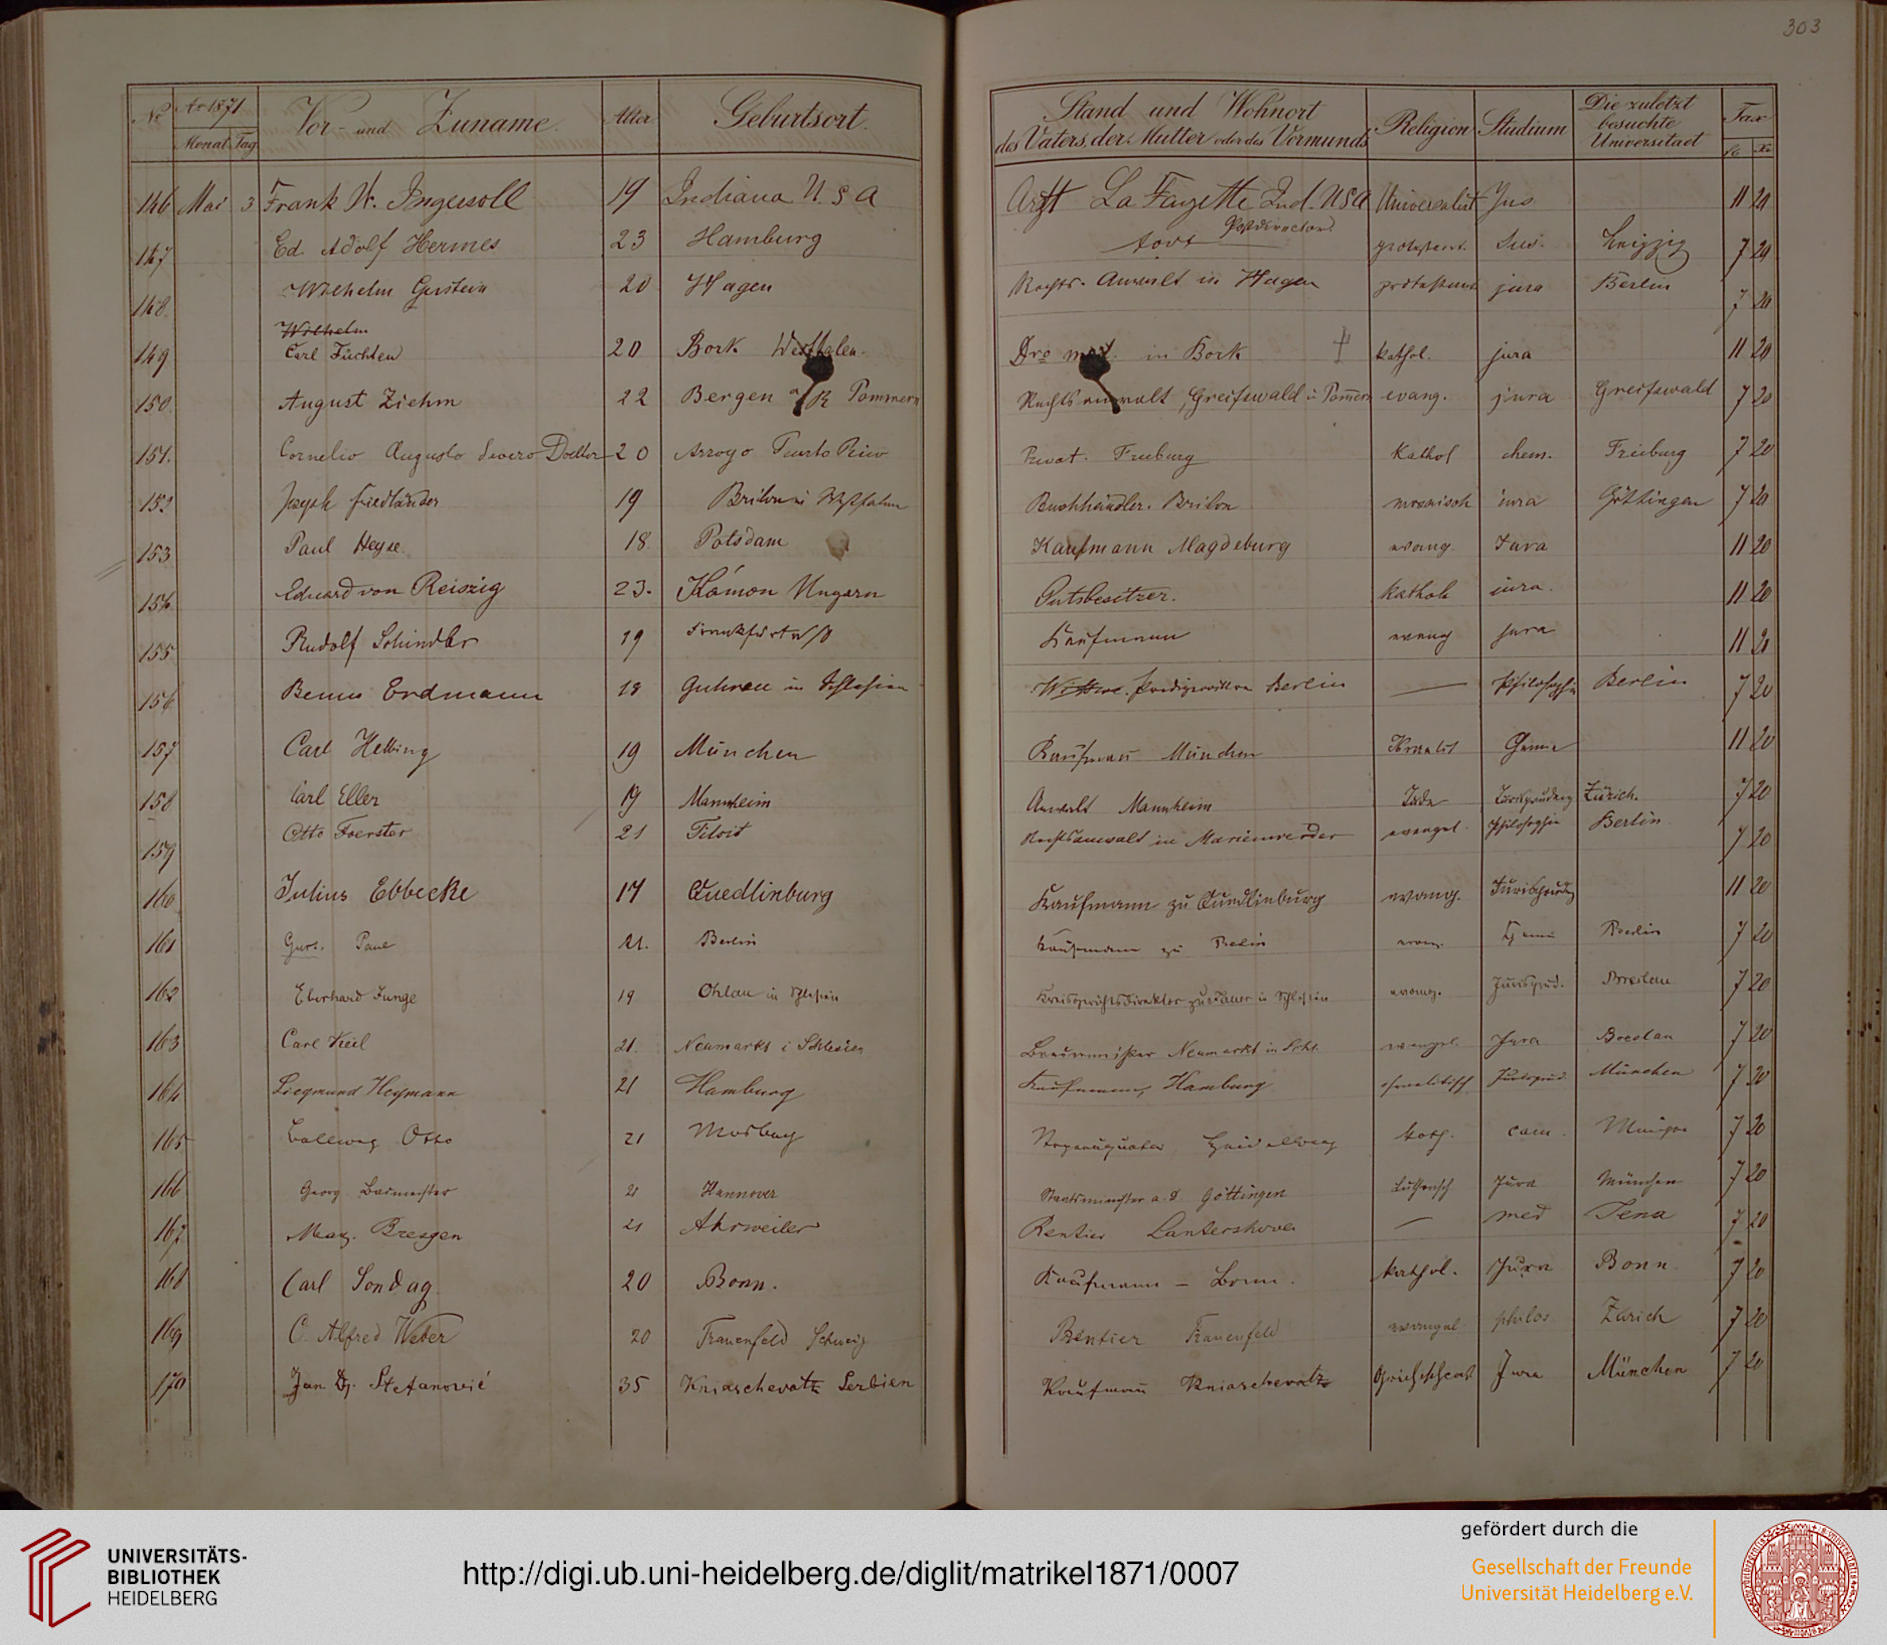 303
No Ao 1871 Vor- und Zuname. Alter Geburtsort. Stand und Wohnort des Vaters, der Mutter oder des Vormunds Religion Studium Die zuletzt besuchte Universitaet Tax
Monat Tag fl Xr
146 Mai 3 Frank W. Ingersoll 19 Indiana U. S A Arzt La Fayette Ind. USA Universalist Jus 11 20
147 Ed. Adolf Hermes 23 Hamburg Postdirector todt protestant. Jus. Leipzig 7 20
148. Wilhelm Gerstein 20 Hagen Rechts-Anwalt in Hagen protestant jura Berlin 7 20
149 Wilhelm Carl Füchten 20 Bork Westfalen. Dro med. in Bork kathol. jura 11 20
150. August Ziehm 22 Bergen a/R Pommern Rechtsanwalt, Greifswald i/ Pommern evang. jura Greifswald 7 20
151. Cornelio Augusto Severo Doctor 20 Arroyo Puerto Rico Privat. Freiburg Kathol chem. Freiburg 7 20
152 Joseph Friedländer 19 Brilon in Westfalen Buchhändler. Brilon mosaisch jura Göttingen 7 20
153 Paul Heyse 18 Potsdam Kaufmann Magdeburg evang. Jura 11 20
154 Eduard von Reiszig 23. Kámon Ungarn Gutsbesitzer. kathol jura. 11 20
155 Rudolf Schindler 19 Frankfurt a/O Kaufmann evang jura 11 20
156 Benno Erdmann 19 Guhrau in Schlesien Wittwe. Predigerwittwe Berlin — Philosophie Berlin 7 20
157 Carl Helbing 19 München Kaufmann München Chemie 11 20
158 Carl Eller 19 Mannheim Anwalt Mannheim Jude Jurisprudenz Zürich. 7 20
159 Otto Foerster 21 Tilsit Rechtsanwalt in Marienwerder evangel. Philosophie Berlin 7 20
160 Julius Ebbecke 17 Quedlinburg Kaufmann zu Quedlinburg evang. Jurisprudenz 11 20
161 Paul 21. Berlin Kaufmann zu Berlin evang. Chemie Berlin 7 20
162 Eberhard Junge 19 Ohlau in Schlesien Kreisgerichtsdirektor zu Jauer in Schlesien evang. Jurisprud. Breslau 7 20
163 Carl Keil 21. Neumarkt i Schlesien Braumeister Neumarkt in Schl. evangel. Jura Breslau 7 20
164 Siegmund Heymann 21 Hamburg Kaufmann, Hamburg israelitisch Jurisprud. München 7 20
165 Otto 21 Mosbach Heidelberg kath. cam. 7 20
166 Georg Baumeister 21 Hannover Staatsminister a. D Göttingen Lutherisch Jura München 7 20
167 Max. Bresgen 21 Ahrweiler Rentier Lantershoven — med Jena 7 20
168 Carl Sondag 20 Bonn. Kaufmann – Bonn. kathol. Jura Bonn 7 20
169 C. Alfred Weber 20 Frauenfeld Schweiz Rentier Frauenfeld evangel philos Zürich 7 20
170 Jan Dj. Stefanović 35 Kniaschevatz Serbien Kaufmann Kniaschevatz Jura München 7 20
UNIVERSITÄTS-
BIBLIOTHEK
HEIDELBERG
http://digi.ub.uni-heidelberg.de/diglit/matrikel1871/0007
gefördert durch die
Gesellschaft der Freunde
Universität Heidelberg e.V.